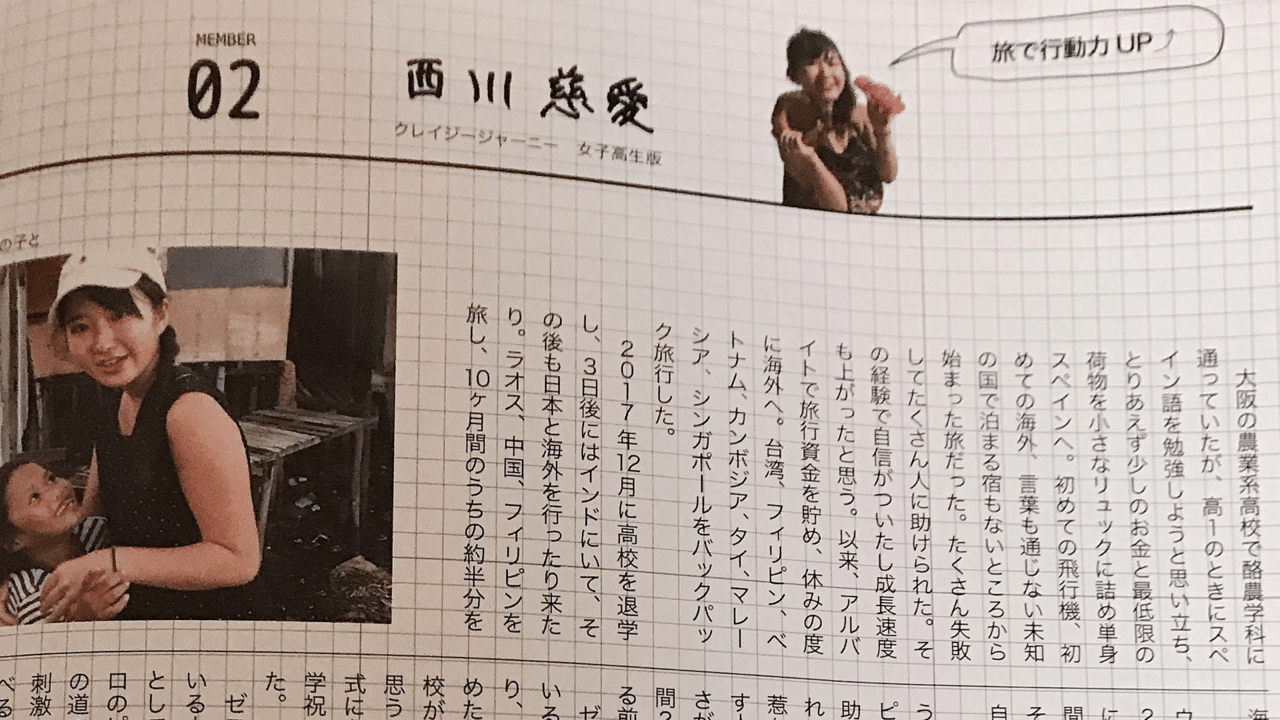 MEMBER
02
西川慈愛
クレイジージャーニー　女子高生版
旅で行動力UP⤴
の子と
大阪の農業系高校で酪農学科に
通っていたが、高1のときにスペ
イン語を勉強しようと思い立ち、
とりあえず少しのお金と最低限の
荷物を小さなリュックに詰め単身
スペインへ。初めての飛行機、初
めての海外、言葉も通じない未知
の国で泊まる宿もないところから
始まった旅だった。たくさん失敗
してたくさん人に助けられた。そ
の経験で自信がついたし成長速度
も上がったと思う。以来、アルバ
イトで旅行資金を貯め、休みの度
に海外へ。台湾、フィリピン、ベ
トナム、カンボジア、タイ、マレー
シア、シンガポールをバックパッ
ク旅行した。
2017年12月に高校を退学
し、3日後にはインドにいて、そ
の後も日本と海外を行ったり来た
り。ラオス、中国、フィリピンを
旅し、10ヶ月間のうちの約半分を
海
ウ
2
に
間
そ
自
う
ピ
助
れ
惹
す
さが
間
る前
ゼ
いる
り、
めた
校が
思う
式に
学祝
た。
ゼ
いる
とし
口の
の道
刺激
べる